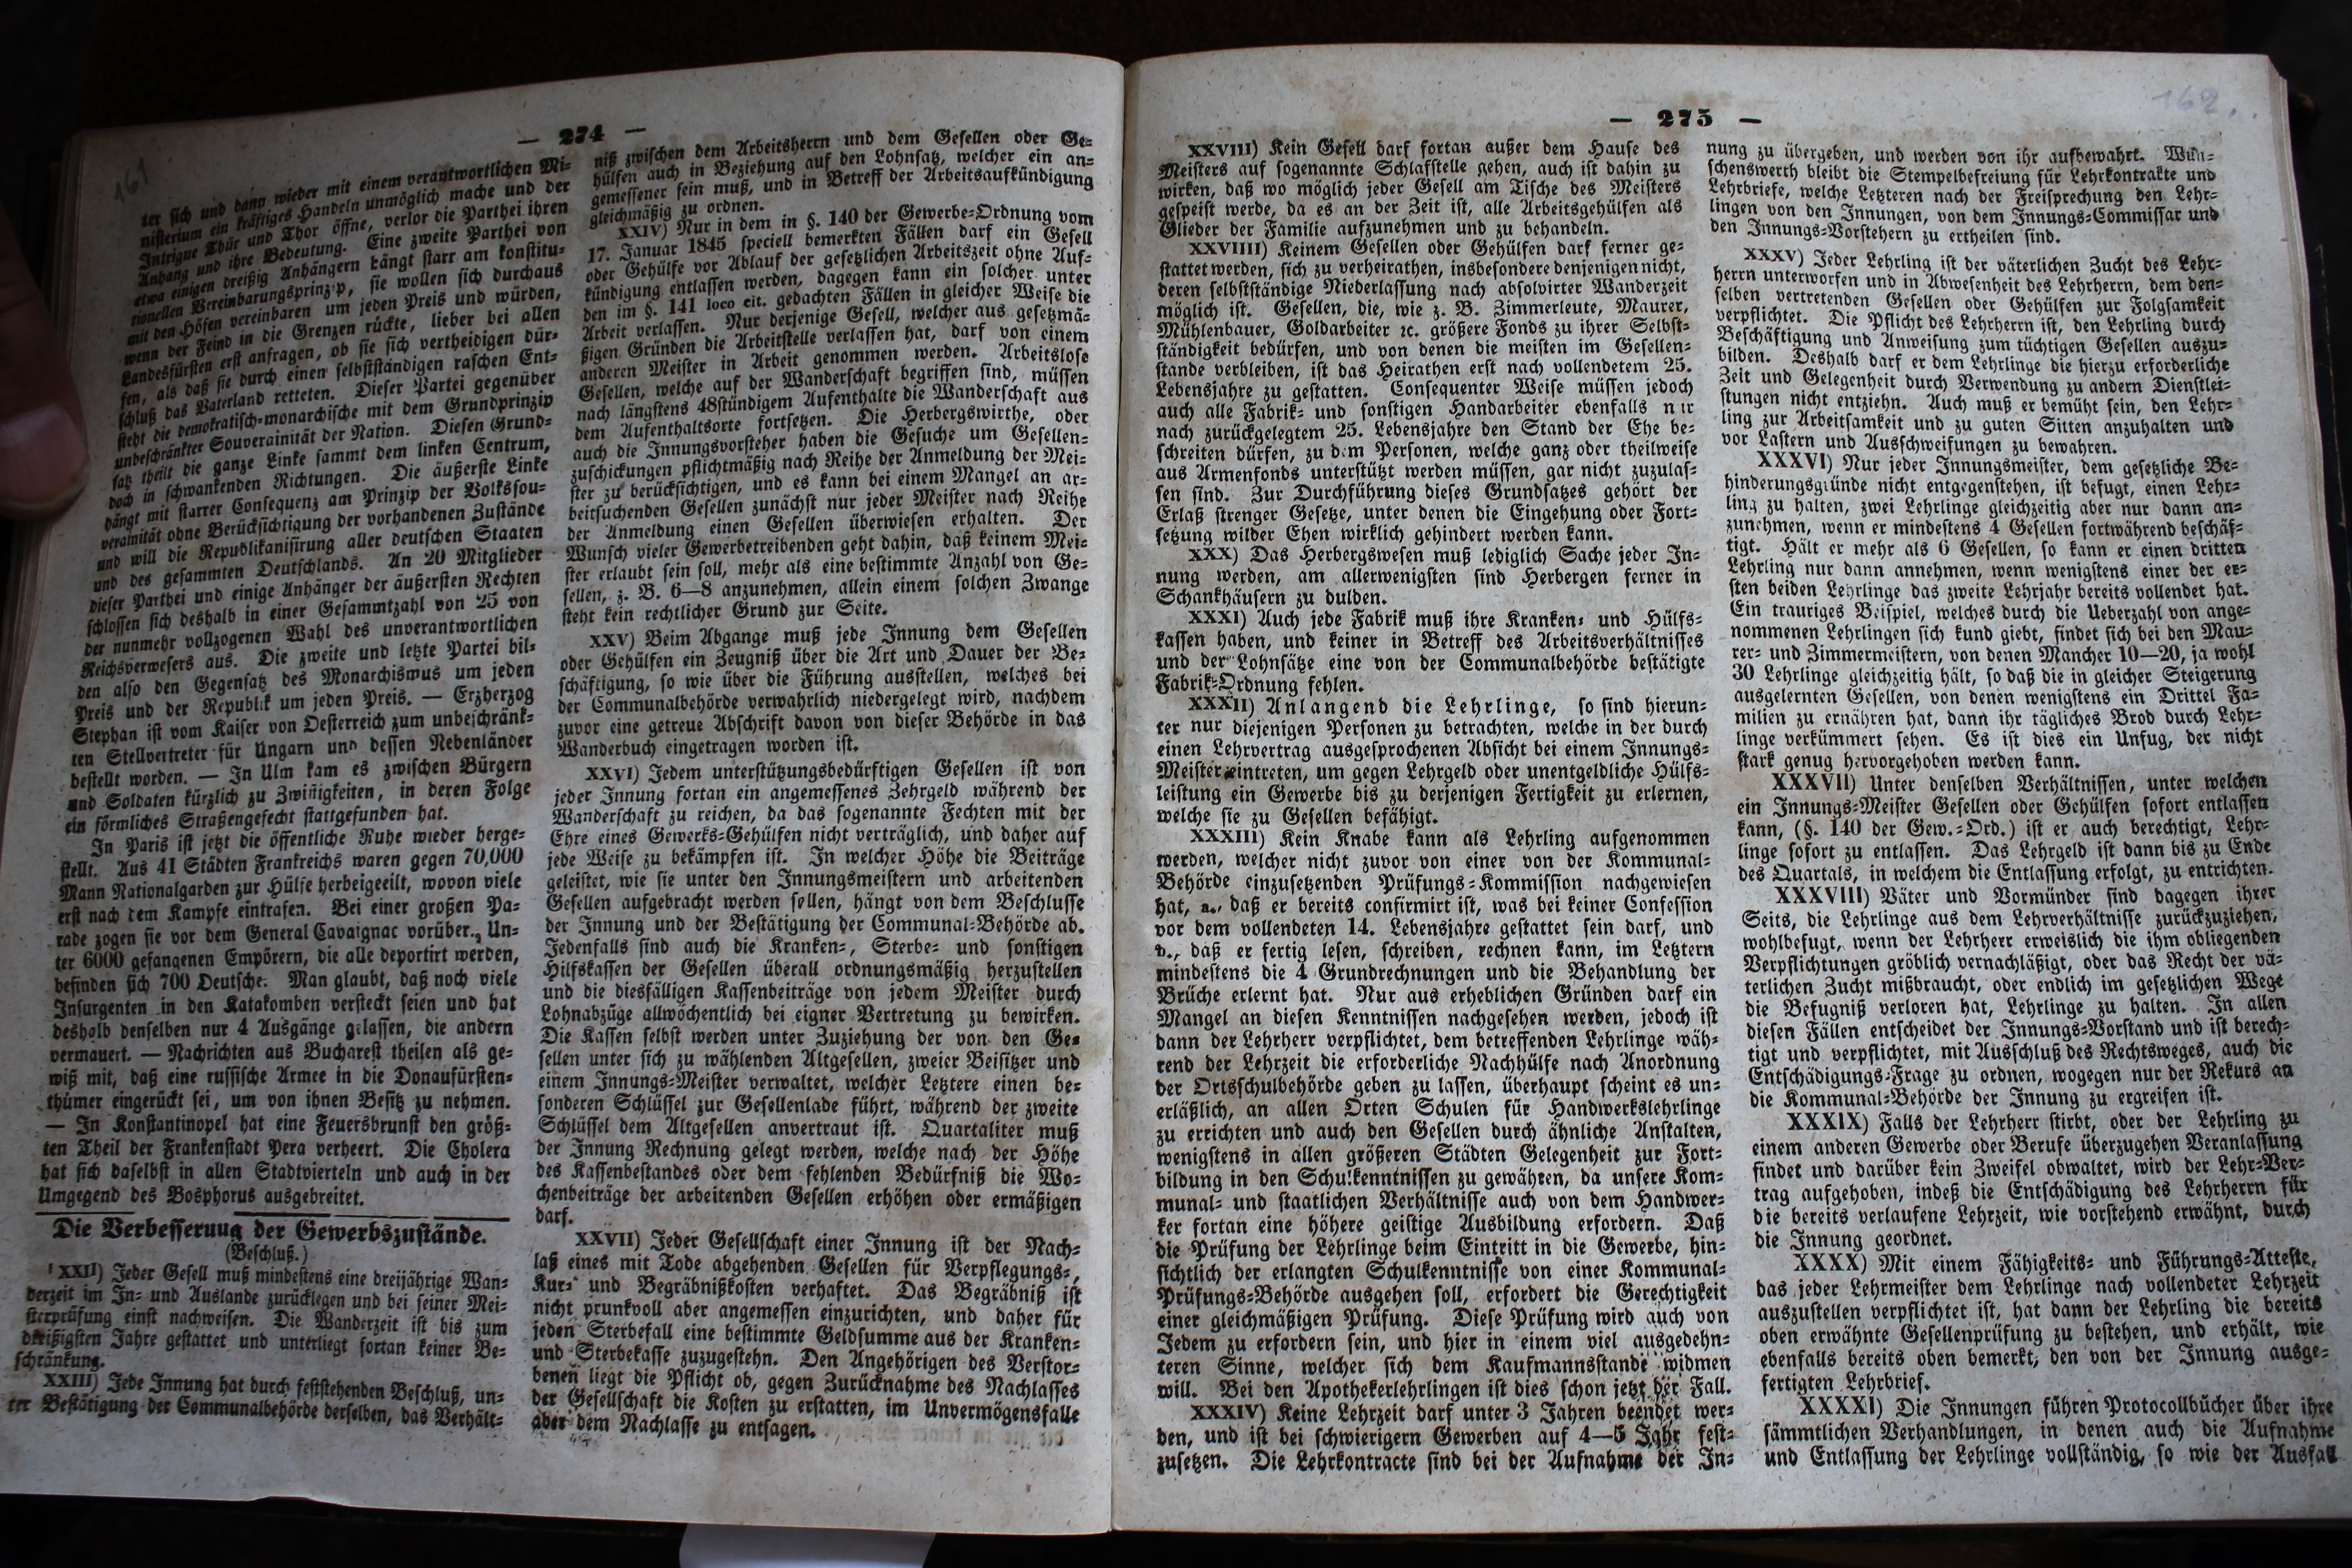 — 274 —
161
ter sich und dann wieder mit einem verantwortlichen Mi-
nisterium ein kräftiges Handeln unmöglich mache und der
Intrigue Thür und Thor öffne, verlor die Parthei ihren
Anhang und ihre Bedeutung. Eine zweite Parthei von
etwa einigen dreißig Anhängern hängt starr am konstitu-
tionellen Vereinbarungsprinzip, sie wollen sich durchaus
mit den Höfen vereinbaren um jeden Preis und würden,
wenn der Feind in die Grenzen rückte, lieber bei allen
Landesfürsten erst anfragen, ob sie sich vertheidigen dür-
fen, als daß sie durch einen selbstständigen raschen Ent-
schluß das Vaterland retteten. Dieser Partei gegenüber
steht die demokratisch-monarchische mit dem Grundprinzip
unbeschränkter Souverainität der Nation. Diesen Grund-
satz theilt die ganze Linke sammt dem linken Centrum,
doch in schwankenden Richtungen. Die äußerste Linke
hängt mit starrer Consequenz am Prinzip der Volkssou-
verainität ohne Berücksichtigung der vorhandenen Zustände
und will die Republikanisirung aller deutschen Staaten
und des gesammten Deutschlands. An 20 Mitglieder
dieser Parthei und einige Anhänger der äußersten Rechten
schlossen sich deshalb in einer Gesammtzahl von 25 von
der nunmehr vollzogenen Wahl des unverantwortlichen
Reichsverwesers aus. Die zweite und letzte Partei bil-
den also den Gegensatz des Monarchismus um jeden
Preis und der Republik um jeden Preis. — Erzherzog
Stephan ist vom Kaiser von Oesterreich zum unbeschränk-
ten Stellvertreter für Ungarn und dessen Nebenländer
bestellt worden. — In Ulm kam es zwischen Bürgern
und Soldaten kürzlich zu Zwistigkeiten, in deren Folge
ein förmliches Straßengefecht stattgefunden hat.
In Paris ist jetzt die öffentliche Ruhe wieder herge-
stellt. Aus 41 Städten Frankreichs waren gegen 70,000
Mann Nationalgarden zur Hülfe herbeigeeilt, wovon viele
erst nach dem Kampfe eintrafen. Bei einer großen Pa-
rade zogen sie vor dem General Cavaignac vorüber. Un-
ter 6000 gefangenen Empörern, die alle deportirt werden,
befinden sich 700 Deutsche. Man glaubt, daß noch viele
Insurgenten in den Katakomben versteckt seien und hat
deshalb denselben nur 4 Ausgänge gelassen, die andern
vermauert. — Nachrichten aus Bucharest theilen als ge-
wiß mit, daß eine russische Armee in die Donaufürsten-
thümer eingerückt sei, um von ihnen Besitz zu nehmen.
— In Konstantinopel hat eine Feuersbrunst den größ-
ten Theil der Frankenstadt Pera verheert. Die Cholera
hat sich daselbst in allen Stadtvierteln und auch in der
Umgegend des Bosphorus ausgebreitet.
Die Verbesserung der Gewerbszustände.
(Beschluß.)
XXII) Jeder Gesell muß mindestens eine dreijährige Wan-
derzeit im In- und Auslande zurücklegen und bei seiner Mei-
sterprüfung einst nachweisen. Die Wanderzeit ist bis zum
dreißigsten Jahre gestattet und unterliegt fortan keiner Be-
schränkung.
XXIII) Jede Innung hat durch feststehenden Beschluß, un-
ter Bestätigung der Communalbehörde derselben, das Verhält-
niß zwischen dem Arbeitsherrn und dem Gesellen oder Ge-
hülfen auch in Beziehung auf den Lohnsatz, welcher ein an-
gemessener sein muß, und in Betreff der Arbeitsaufkündigung
gleichmäßig zu ordnen.
XXIV) Nur in dem in §. 140 der Gewerbe-Ordnung vom
17. Januar 1845 speciell bemerkten Fällen darf ein Gesell
oder Gehülfe vor Ablauf der gesetzlichen Arbeitszeit ohne Auf-
kündigung entlassen werden, dagegen kann ein solcher unter
den im §. 141 loco cit. gedachten Fällen in gleicher Weise die
Arbeit verlassen. Nur derjenige Gesell, welcher aus gesetzmä-
ßigen Gründen die Arbeitstelle verlassen hat, darf von einem
anderen Meister in Arbeit genommen werden. Arbeitslose
Gesellen, welche auf der Wanderschaft begriffen sind, müssen
nach längstens 48stündigem Aufenthalte die Wanderschaft aus
dem Aufenthaltsorte fortsetzen. Die Herbergswirthe, oder
auch die Innungsvorsteher haben die Gesuche um Gesellen-
zuschickungen pflichtmäßig nach Reihe der Anmeldung der Mei-
ster zu berücksichtigen, und es kann bei einem Mangel an ar-
beitsuchenden Gesellen zunächst nur jeder Meister nach Reihe
der Anmeldung einen Gesellen überwiesen erhalten. Der
Wunsch vieler Gewerbetreibenden geht dahin, daß keinem Mei-
ster erlaubt sein soll, mehr als eine bestimmte Anzahl von Ge-
sellen, z. B. 6—8 anzunehmen, allein einem solchen Zwange
steht kein rechtlicher Grund zur Seite.
XXV) Beim Abgange muß jede Innung dem Gesellen
oder Gehülfen ein Zeugniß über die Art und Dauer der Be-
schäftigung, so wie über die Führung ausstellen, welches bei
der Communalbehörde verwahrlich niedergelegt wird, nachdem
zuvor eine getreue Abschrift davon von dieser Behörde in das
Wanderbuch eingetragen worden ist.
XXVI) Jedem unterstützungsbedürftigen Gesellen ist von
jeder Innung fortan ein angemessenes Zehrgeld während der
Wanderschaft zu reichen, da das sogenannte Fechten mit der
Ehre eines Gewerks-Gehülfen nicht verträglich, und daher auf
jede Weise zu bekämpfen ist. In welcher Höhe die Beiträge
geleistet, wie sie unter den Innungsmeistern und arbeitenden
Gesellen aufgebracht werden sollen, hängt von dem Beschlusse
der Innung und der Bestätigung der Communal-Behörde ab.
Jedenfalls sind auch die Kranken-, Sterbe- und sonstigen
Hilfskassen der Gesellen überall ordnungsmäßig herzustellen
und die diesfälligen Kassenbeiträge von jedem Meister durch
Lohnabzüge allwöchentlich bei eigner Vertretung zu bewirken.
Die Kassen selbst werden unter Zuziehung der von den Ge-
sellen unter sich zu wählenden Altgesellen, zweier Beisitzer und
einem Innungs-Meister verwaltet, welcher Letztere einen be-
sonderen Schlüssel zur Gesellenlade führt, während der zweite
Schlüssel dem Altgesellen anvertraut ist. Quartaliter muß
der Innung Rechnung gelegt werden, welche nach der Höhe
des Kassenbestandes oder dem fehlenden Bedürfniß die Wo-
chenbeiträge der arbeitenden Gesellen erhöhen oder ermäßigen
darf.
XXVII) Jeder Gesellschaft einer Innung ist der Nach-
laß eines mit Tode abgehenden Gesellen für Verpflegungs-,
Kur- und Begräbnißkosten verhaftet. Das Begräbniß ist
nicht prunkvoll aber angemessen einzurichten, und daher für
jeden Sterbefall eine bestimmte Geldsumme aus der Kranken-
und Sterbekasse zuzugestehn. Den Angehörigen des Verstor-
benen liegt die Pflicht ob, gegen Zurücknahme des Nachlasses
der Gesellschaft die Kosten zu erstatten, im Unvermögensfalle
aber dem Nachlasse zu entsagen.
— 275 —
162.
XXVIII) Kein Gesell darf fortan außer dem Hause des
Meisters auf sogenannte Schlafstelle gehen, auch ist dahin zu
wirken, daß wo möglich jeder Gesell am Tische des Meisters
gespeist werde, da es an der Zeit ist, alle Arbeitsgehülfen als
Glieder der Familie aufzunehmen und zu behandeln.
XXVIIII) Keinem Gesellen oder Gehülfen darf ferner ge-
stattet werden, sich zu verheirathen, insbesondere denjenigen nicht,
deren selbstständige Niederlassung nach absolvirter Wanderzeit
möglich ist. Gesellen, die, wie z. B. Zimmerleute, Maurer,
Mühlenbauer, Goldarbeiter ꝛc. größere Fonds zu ihrer Selbst-
ständigkeit bedürfen, und von denen die meisten im Gesellen-
stande verbleiben, ist das Heirathen erst nach vollendetem 25.
Lebensjahre zu gestatten. Consequenter Weise müssen jedoch
auch alle Fabrik- und sonstigen Handarbeiter ebenfalls nur
nach zurückgelegtem 25. Lebensjahre den Stand der Ehe be-
schreiten dürfen, zu dem Personen, welche ganz oder theilweise
aus Armenfonds unterstützt werden müssen, gar nicht zuzulas-
sen sind. Zur Durchführung dieses Grundsatzes gehört der
Erlaß strenger Gesetze, unter denen die Eingehung oder Fort-
setzung wilder Ehen wirklich gehindert werden kann.
XXX) Das Herbergswesen muß lediglich Sache jeder In-
nung werden, am allerwenigsten sind Herbergen ferner in
Schankhäusern zu dulden.
XXXI) Auch jede Fabrik muß ihre Kranken- und Hülfs-
kassen haben, und keiner in Betreff des Arbeitsverhältnisses
und der Lohnsätze eine von der Communalbehörde bestätigte
Fabrik-Ordnung fehlen.
XXXII) Anlangend die Lehrlinge, so sind hierun-
ter nur diejenigen Personen zu betrachten, welche in der durch
einen Lehrvertrag ausgesprochenen Absicht bei einem Innungs-
Meister eintreten, um gegen Lehrgeld oder unentgeldliche Hülfs-
leistung ein Gewerbe bis zu derjenigen Fertigkeit zu erlernen,
welche sie zu Gesellen befähigt.
XXXIII) Kein Knabe kann als Lehrling aufgenommen
werden, welcher nicht zuvor von einer von der Kommunal-
Behörde einzusetzenden Prüfungs-Kommission nachgewiesen
hat, a., daß er bereits confirmirt ist, was bei keiner Confession
vor dem vollendeten 14. Lebensjahre gestattet sein darf, und
b., daß er fertig lesen, schreiben, rechnen kann, im Letztern
mindestens die 4 Grundrechnungen und die Behandlung der
Brüche erlernt hat. Nur aus erheblichen Gründen darf ein
Mangel an diesen Kenntnissen nachgesehen werden, jedoch ist
dann der Lehrherr verpflichtet, dem betreffenden Lehrlinge wäh-
rend der Lehrzeit die erforderliche Nachhülfe nach Anordnung
der Ortsschulbehörde geben zu lassen, überhaupt scheint es un-
erläßlich, an allen Orten Schulen für Handwerkslehrlinge
zu errichten und auch den Gesellen durch ähnliche Anstalten,
wenigstens in allen größeren Städten Gelegenheit zur Fort-
bildung in den Schulkenntnissen zu gewähren, da unsere Kom-
munal- und staatlichen Verhältnisse auch von dem Handwer-
ker fortan eine höhere geistige Ausbildung erfordern. Daß
die Prüfung der Lehrlinge beim Eintritt in die Gewerbe, hin-
sichtlich der erlangten Schulkenntnisse von einer Kommunal-
Prüfungs-Behörde ausgehen soll, erfordert die Gerechtigkeit
einer gleichmäßigen Prüfung. Diese Prüfung wird auch von
Jedem zu erfordern sein, und hier in einem viel ausgedehn-
teren Sinne, welcher sich dem Kaufmannsstande widmen
will. Bei den Apothekerlehrlingen ist dies schon jetzt der Fall.
XXXIV) Keine Lehrzeit darf unter 3 Jahren beendet wer-
den, und ist bei schwierigern Gewerben auf 4—5 Jahr fest-
zusetzen. Die Lehrkontracte sind bei der Aufnahme der In-
nung zu übergeben, und werden von ihr aufbewahrt. Wün-
schenswerth bleibt die Stempelbefreiung für Lehrkontrakte und
Lehrbriefe, welche Letzteren nach der Freisprechung den Lehr-
lingen von den Innungen, von dem Innungs-Commissar und
den Innungs-Vorstehern zu ertheilen sind.
XXXV) Jeder Lehrling ist der väterlichen Zucht des Lehr-
herrn unterworfen und in Abwesenheit des Lehrherrn, dem den-
selben vertretenden Gesellen oder Gehülfen zur Folgsamkeit
verpflichtet. Die Pflicht des Lehrherrn ist, den Lehrling durch
Beschäftigung und Anweisung zum tüchtigen Gesellen auszu-
bilden. Deshalb darf er dem Lehrlinge die hierzu erforderliche
Zeit und Gelegenheit durch Verwendung zu andern Dienstlei-
stungen nicht entziehn. Auch muß er bemüht sein, den Lehr-
ling zur Arbeitsamkeit und zu guten Sitten anzuhalten und
vor Lastern und Ausschweifungen zu bewahren.
XXXVI) Nur jeder Innungsmeister, dem gesetzliche Be-
hinderungsgründe nicht entgegenstehen, ist befugt, einen Lehr-
ling zu halten, zwei Lehrlinge gleichzeitig aber nur dann an-
zunehmen, wenn er mindestens 4 Gesellen fortwährend beschäf-
tigt. Hält er mehr als 6 Gesellen, so kann er einen dritten
Lehrling nur dann annehmen, wenn wenigstens einer der er-
sten beiden Lehrlinge das zweite Lehrjahr bereits vollendet hat.
Ein trauriges Beispiel, welches durch die Ueberzahl von ange-
nommenen Lehrlingen sich kund giebt, findet sich bei den Mau-
rer- und Zimmermeistern, von denen Mancher 10—20, ja wohl
30 Lehrlinge gleichzeitig hält, so daß die in gleicher Steigerung
ausgelernten Gesellen, von denen wenigstens ein Drittel Fa-
milien zu ernähren hat, dann ihr tägliches Brod durch Lehr-
linge verkümmert sehen. Es ist dies ein Unfug, der nicht
stark genug hervorgehoben werden kann.
XXXVII) Unter denselben Verhältnissen, unter welchen
ein Innungs-Meister Gesellen oder Gehülfen sofort entlassen
kann, (§. 140 der Gew.-Ord.) ist er auch berechtigt, Lehr-
linge sofort zu entlassen. Das Lehrgeld ist dann bis zu Ende
des Quartals, in welchem die Entlassung erfolgt, zu entrichten.
XXXVIII) Väter und Vormünder sind dagegen ihrer
Seits, die Lehrlinge aus dem Lehrverhältnisse zurückzuziehen,
wohlbefugt, wenn der Lehrherr erweislich die ihm obliegenden
Verpflichtungen gröblich vernachläßigt, oder das Recht der vä-
terlichen Zucht mißbraucht, oder endlich im gesetzlichen Wege
die Befugniß verloren hat, Lehrlinge zu halten. In allen
diesen Fällen entscheidet der Innungs-Vorstand und ist berech-
tigt und verpflichtet, mit Ausschluß des Rechtsweges, auch die
Entschädigungs-Frage zu ordnen, wogegen nur der Rekurs an
die Kommunal-Behörde der Innung zu ergreifen ist.
XXXIX) Falls der Lehrherr stirbt, oder der Lehrling zu
einem anderen Gewerbe oder Berufe überzugehen Veranlassung
findet und darüber kein Zweifel obwaltet, wird der Lehr-Ver-
trag aufgehoben, indeß die Entschädigung des Lehrherrn für
die bereits verlaufene Lehrzeit, wie vorstehend erwähnt, durch
die Innung geordnet.
XXXX) Mit einem Fähigkeits- und Führungs-Atteste,
das jeder Lehrmeister dem Lehrlinge nach vollendeter Lehrzeit
auszustellen verpflichtet ist, hat dann der Lehrling die bereits
oben erwähnte Gesellenprüfung zu bestehen, und erhält, wie
ebenfalls bereits oben bemerkt, den von der Innung ausge-
fertigten Lehrbrief.
XXXXI) Die Innungen führen Protocollbücher über ihre
sämmtlichen Verhandlungen, in denen auch die Aufnahme
und Entlassung der Lehrlinge vollständig, so wie der Ausfall